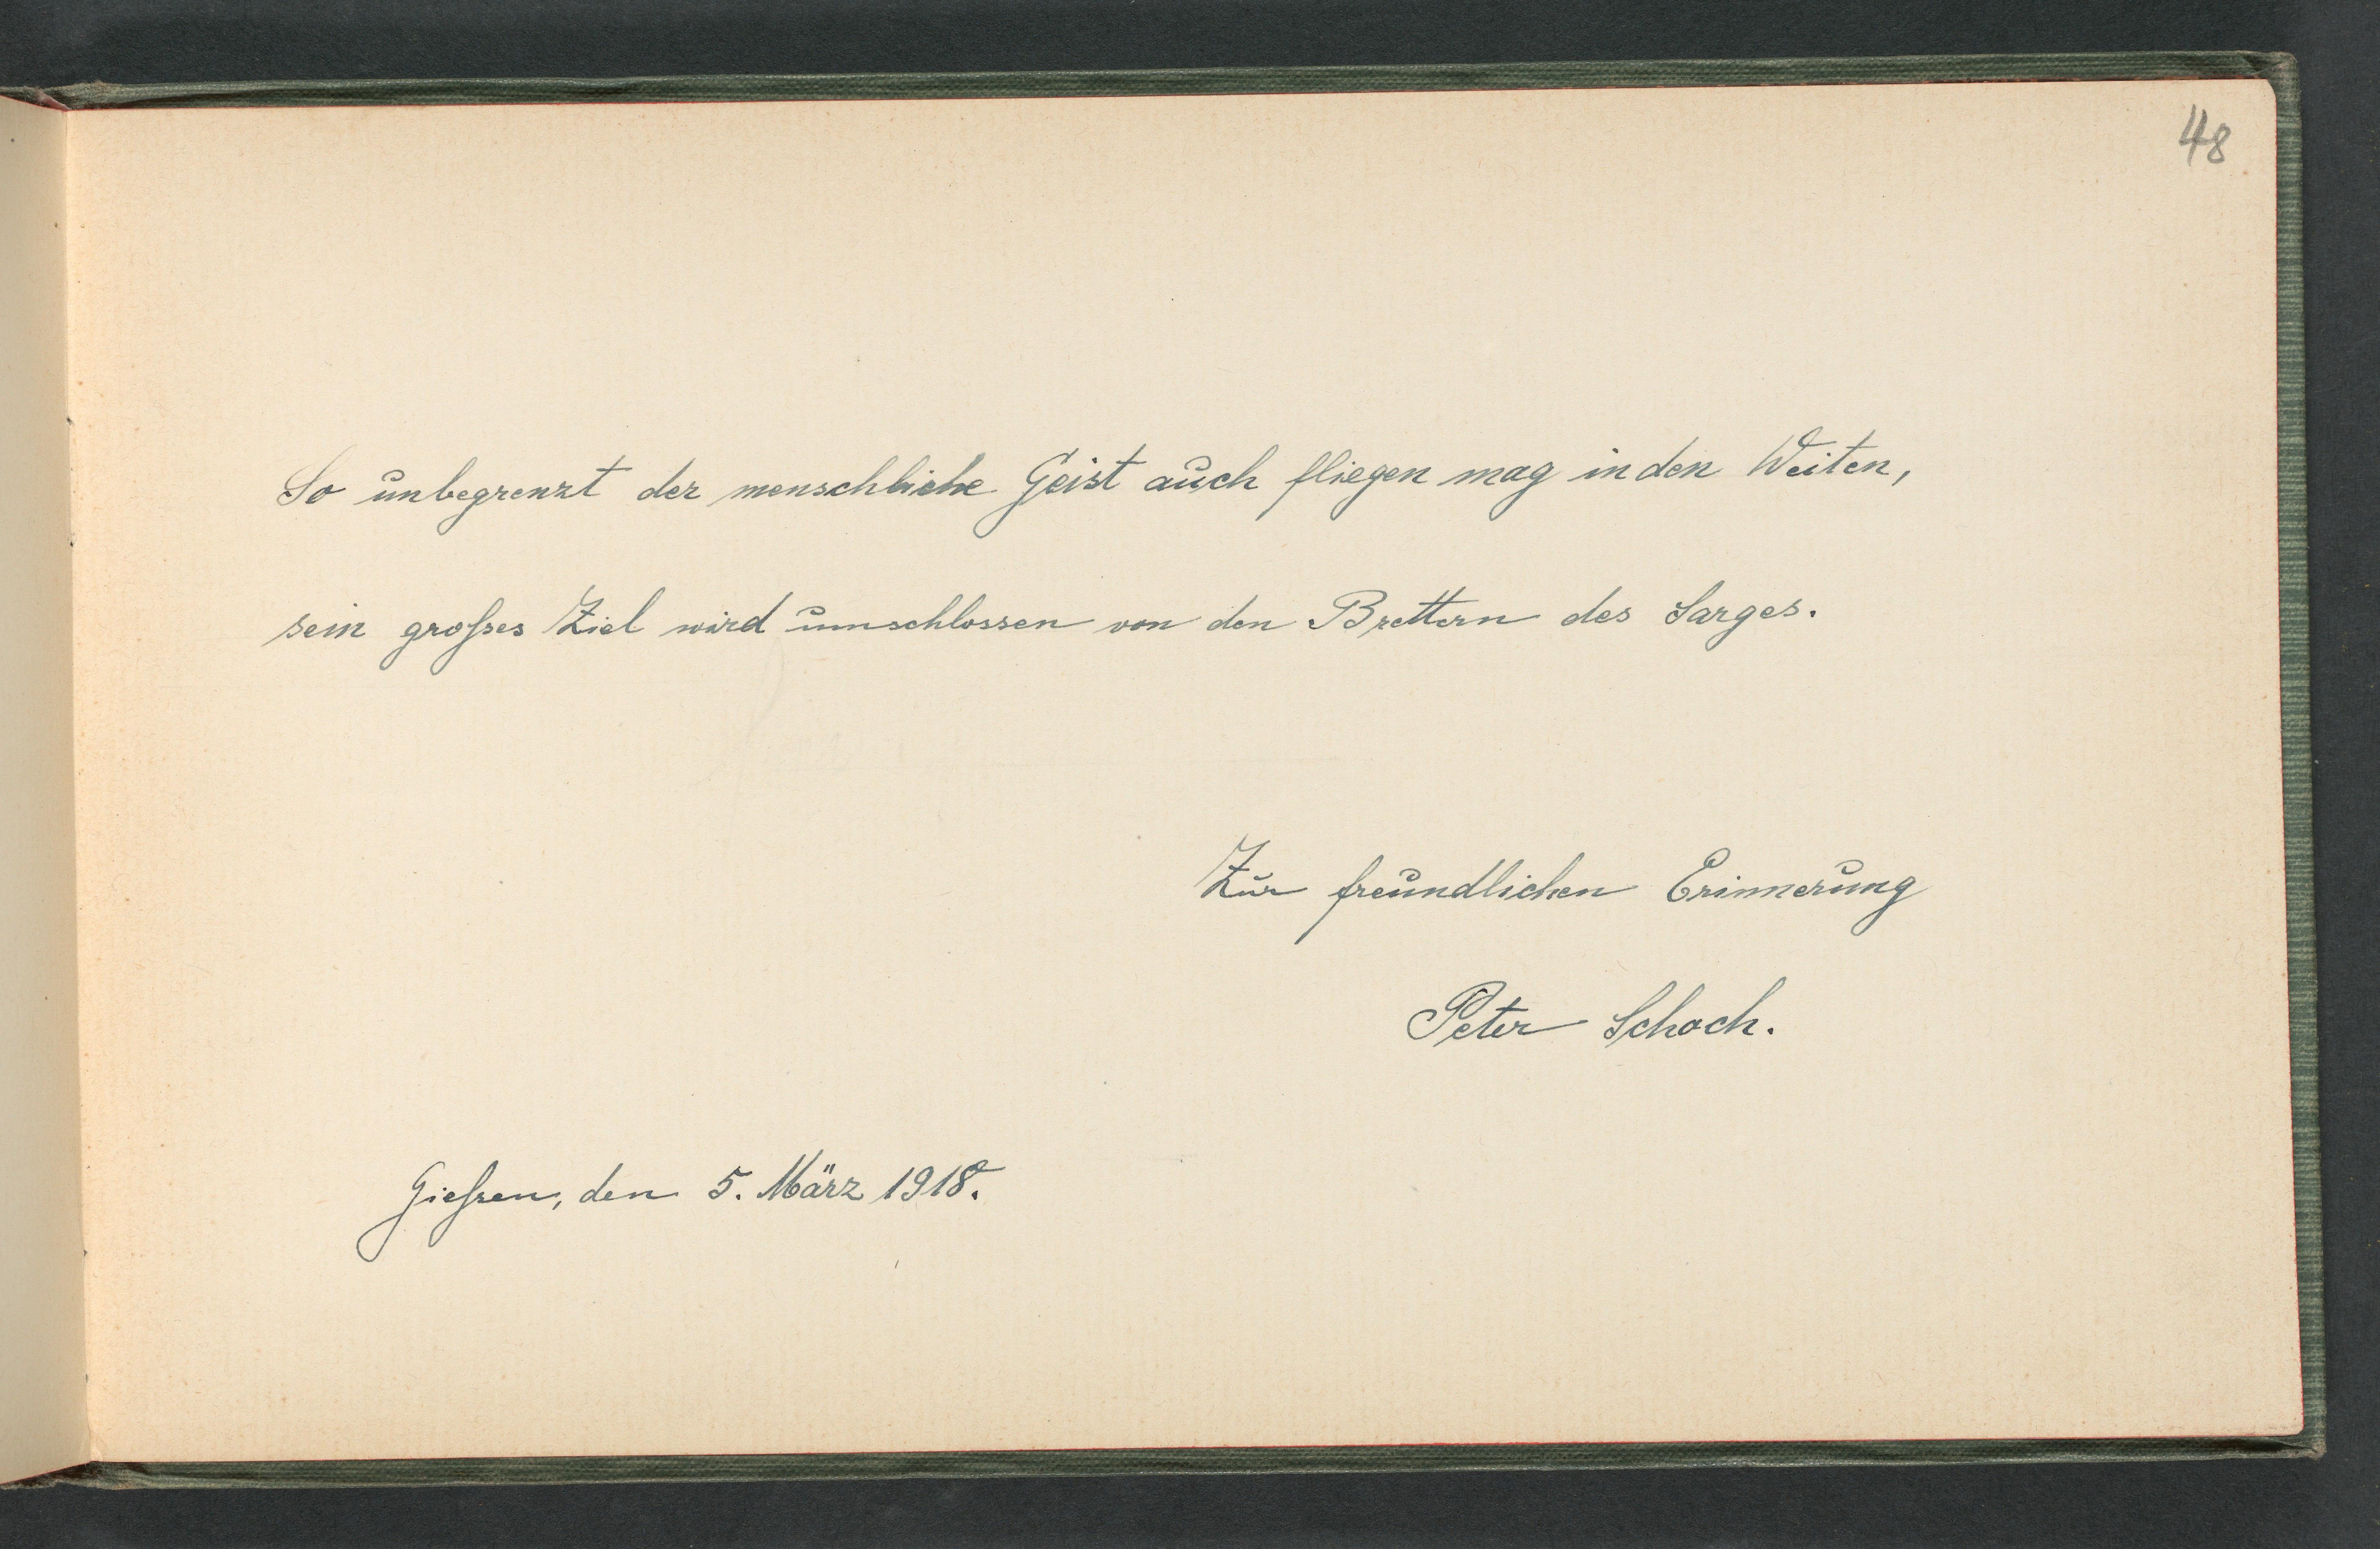 48
So unbegrenzt der menschliche Geist auch fliegen mag in den Weiten,
sein großes Ziel wird umschlossen von den Brettern des Sarges.
Zur freundlichen Erinnerung
Peter Schoch.
Gießen, den 5. März 1918.